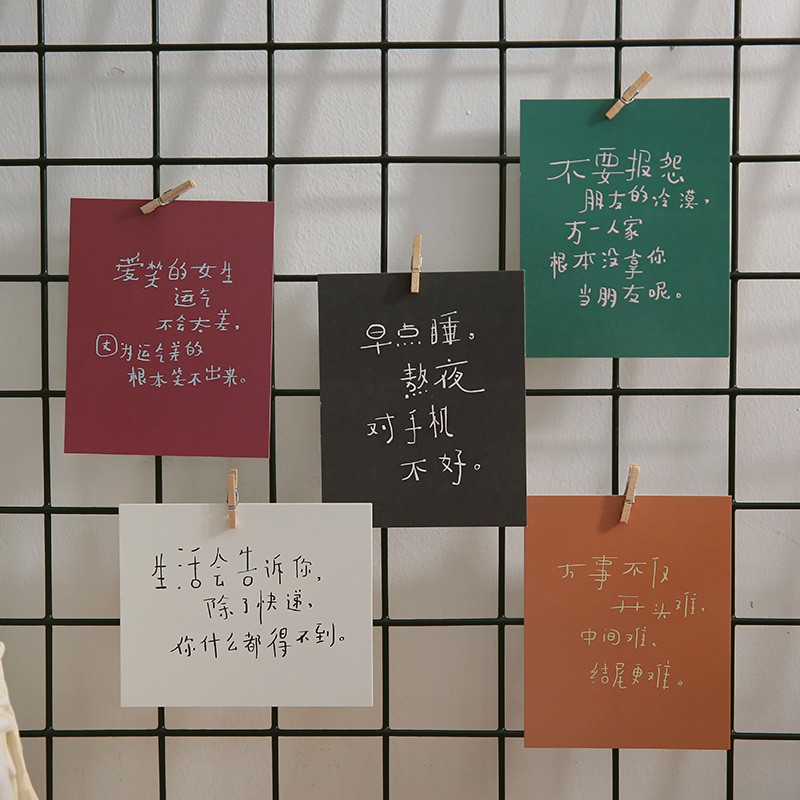 爱笑的女生
运气
不会太差,
因为运气差的
根本笑不出来。
早点睡。
熬夜
对手机
不好。
不要报怨
朋友的冷漠,
万一人家
根本没拿你
当朋友呢。
生活会告诉你,
除了快递,
你什么都得不到。
万事不仅
开头难,
中间难、
结尾更难。